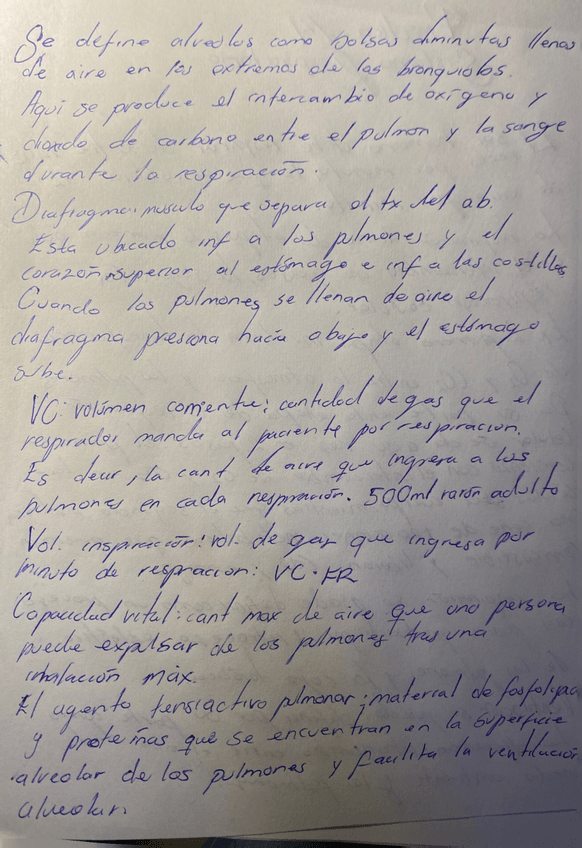 Se define alveolos como bolsas diminutas llenas
de aire en los extremos de los bronquiolos.
Aqui se produce el intercambio de oxígeno y
dioxido de carbono entre el pulmon y la sangre
durante la respiración.
Diafragma: musculo que separa el tx del ab.
Esta ubicado inf a los pulmones y el
corazón, superior al estómago e inf a las costillas
Cuando los pulmones se llenan de aire el
diafragma presiona hacia abajo y el estómago
sube.
VC: volúmen corriente: cantidad de gas que el
respirador manda al paciente por respiracion.
Es decir, la cant de aire que ingresa a los
pulmones en cada respiración. 500ml varón adulto
Vol. inspiración: vol. de gas que ingresa por
minuto de respracion: VC.FR
Capacidad vital: cant max de aire que una persona
puede expulsar de los pulmones tras una
inhalación máx.
El agente tensiactivo pulmonar: material de
y proteínas que se encuentran en la superficie
alveolar de los pulmones y facilita la ventilación
alveolar.